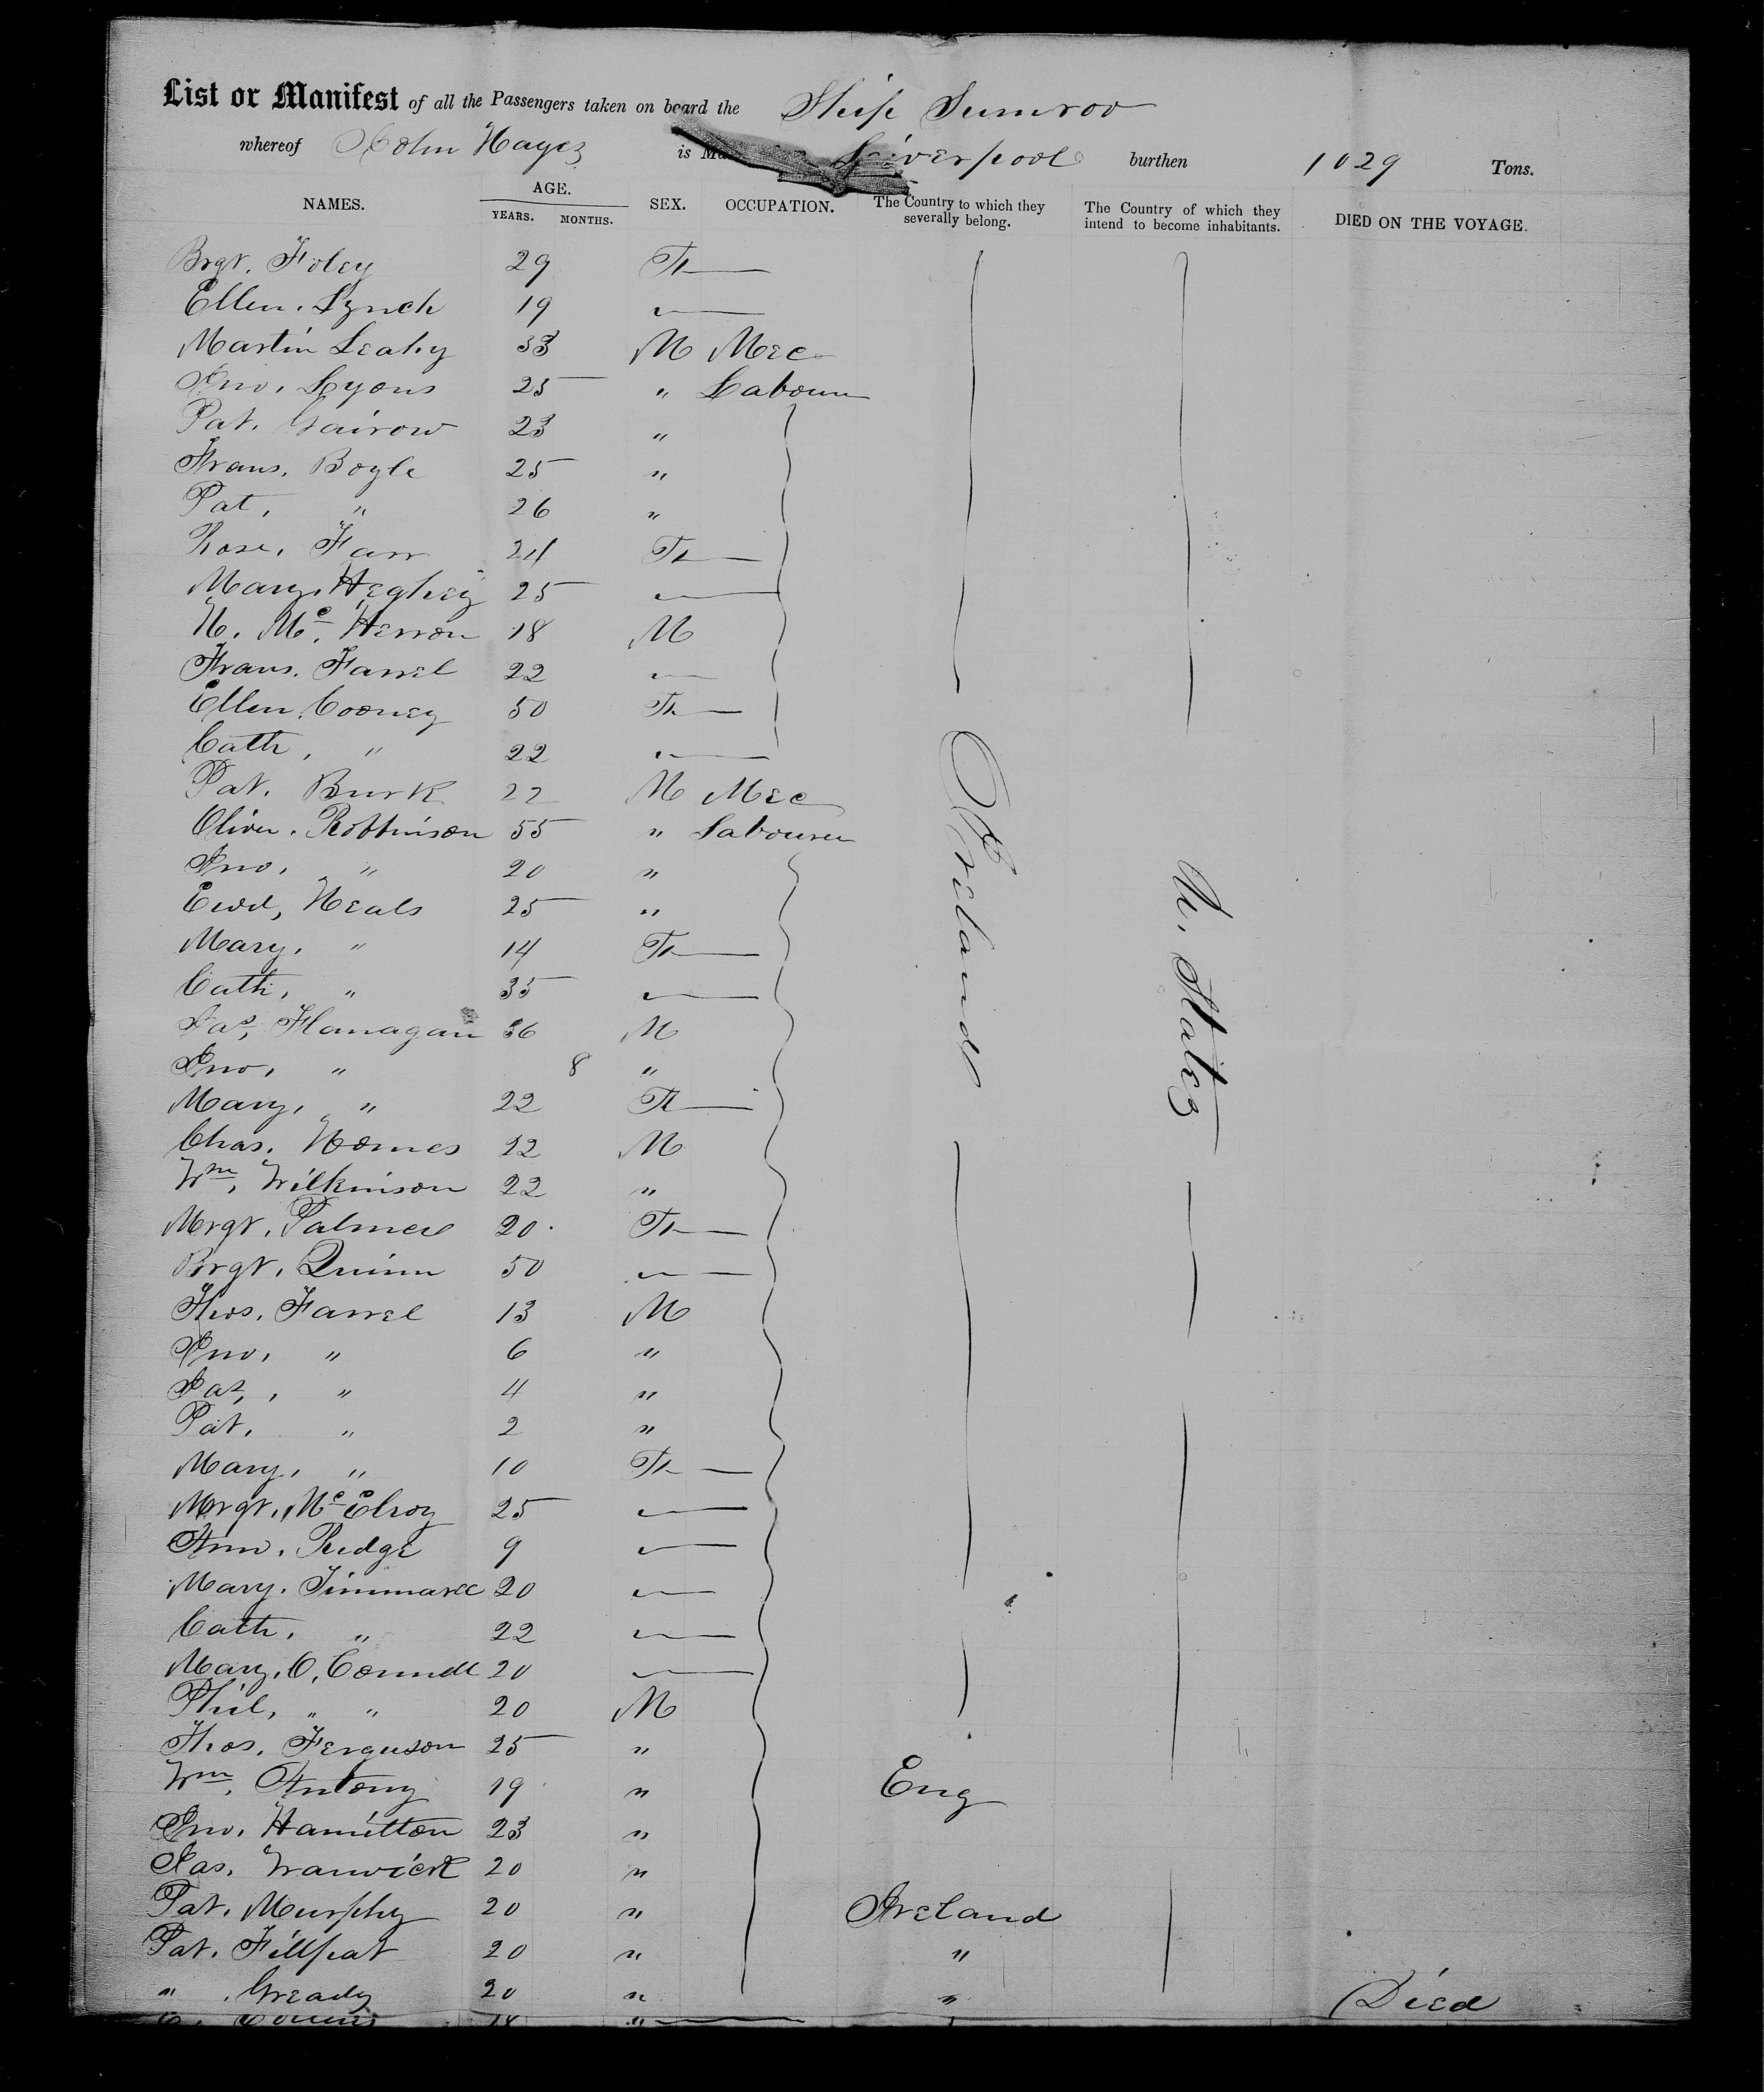 List or Manifest of all the Passengers taken on board the Ship Sumroo
whereof John Hayes is Ma Liverpool burthen 1029 Tons.
NAMES. AGE. YEARS. MONTHS. SEX. OCCUPATION. The Country to which they severally belong. The Country of which they intend to become inhabitants. DIED ON THE VOYAGE.
Brgt. Foley 29 F
Ellen. Lynch 19
Martin Leahy 33 M Mec
Jno. Lyons 25 " Labour
Pat. Gairow 23 "
Frans. Boyle 25 "
Pat. " 26 "
Rose. Farr 24 F
Mary. 25
N. Mc. Herron 18 M
Frans. Farrel 22
Ellen. Cooney 50 F
Cath. " 22
Pat. Burk 22 M Mec
Oliver. Robbinson 55 " Labourer
Jno. " 20 "
Ewd, Neals 25 "
Mary. " 14 F
Cath. " 35
Jas, Flanagan 36 M
Jno. " 8 "
Mary, " 22 F
Chas. 22 M
Wm. Wilkinson 22 "
Mrgt. Palmer 20 F
Brgt. Quinn 50
Thos. Farrel 13 M
Jno. " 6 "
Jas, " 4 "
Pat. " 2 "
Mary, " 10 F
Mrgt. Mc Elroy 25
Ann. Rudge 9
Mary. 20
Cath. " 22
Mary. O, Connell 20
Phil, " " 20 M
Thos. Ferguson 25 "
Wm. Antony 19 " Eng
Jno. Hamilton 23 "
Jas. Warwick 20 "
Pat. Murphy 20 " Ireland
Pat. Fillpat 20 " "
" . Gready 20 " " Died
18 "
Ireland
U. States